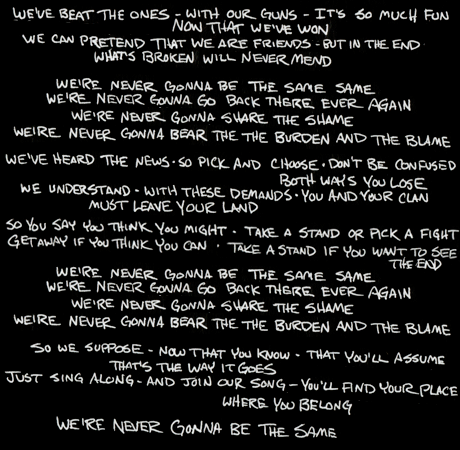 WE'VE BEAT THE ONES - WITH OUR GUNS - IT'S SO MUCH FUN
NOW THAT WE'VE WON
WE CAN PRETEND THAT WE ARE FRIENDS - BUT IN THE END
WHAT'S BROKEN WILL NEVER MEND
WE'RE NEVER GONNA BE THE SAME SAME
WE'RE NEVER GONNA GO BACK THERE EVER AGAIN
WE'RE NEVER GONNA SHARE THE SHAME
WE'RE NEVER GONNA BEAR THE THE BURDEN AND THE BLAME
WE'VE HEARD THE NEWS · SO PICK AND CHOOSE · DON'T BE CONFUSED
BOTH WAYS YOU LOSE
WE UNDERSTAND - WITH THESE DEMANDS · YOU AND YOUR CLAN
MUST LEAVE YOUR LAND
SO YOU SAY YOU THINK YOU MIGHT · TAKE A STAND OR PICK A FIGHT
GETAWAY IF YOU THINK YOU CAN · TAKE A STAND IF YOU WANT TO SEE
THE END
WE'RE NEVER GONNA BE THE SAME SAME
WE'RE NEVER GONNA GO BACK THERE EVER AGAIN
WE'RE NEVER GONNA SHARE THE SHAME
WE'RE NEVER GONNA BEAR THE THE BURDEN AND THE BLAME
SO WE SUPPOSE - NOW THAT YOU KNOW - THAT YOU'LL ASSUME
THAT'S THE WAY IT GOES
JUST SING ALONG - AND JOIN OUR SONG - YOU'LL FIND YOUR PLACE
WHERE YOU BELONG
WE'RE NEVER GONNA BE THE SAME